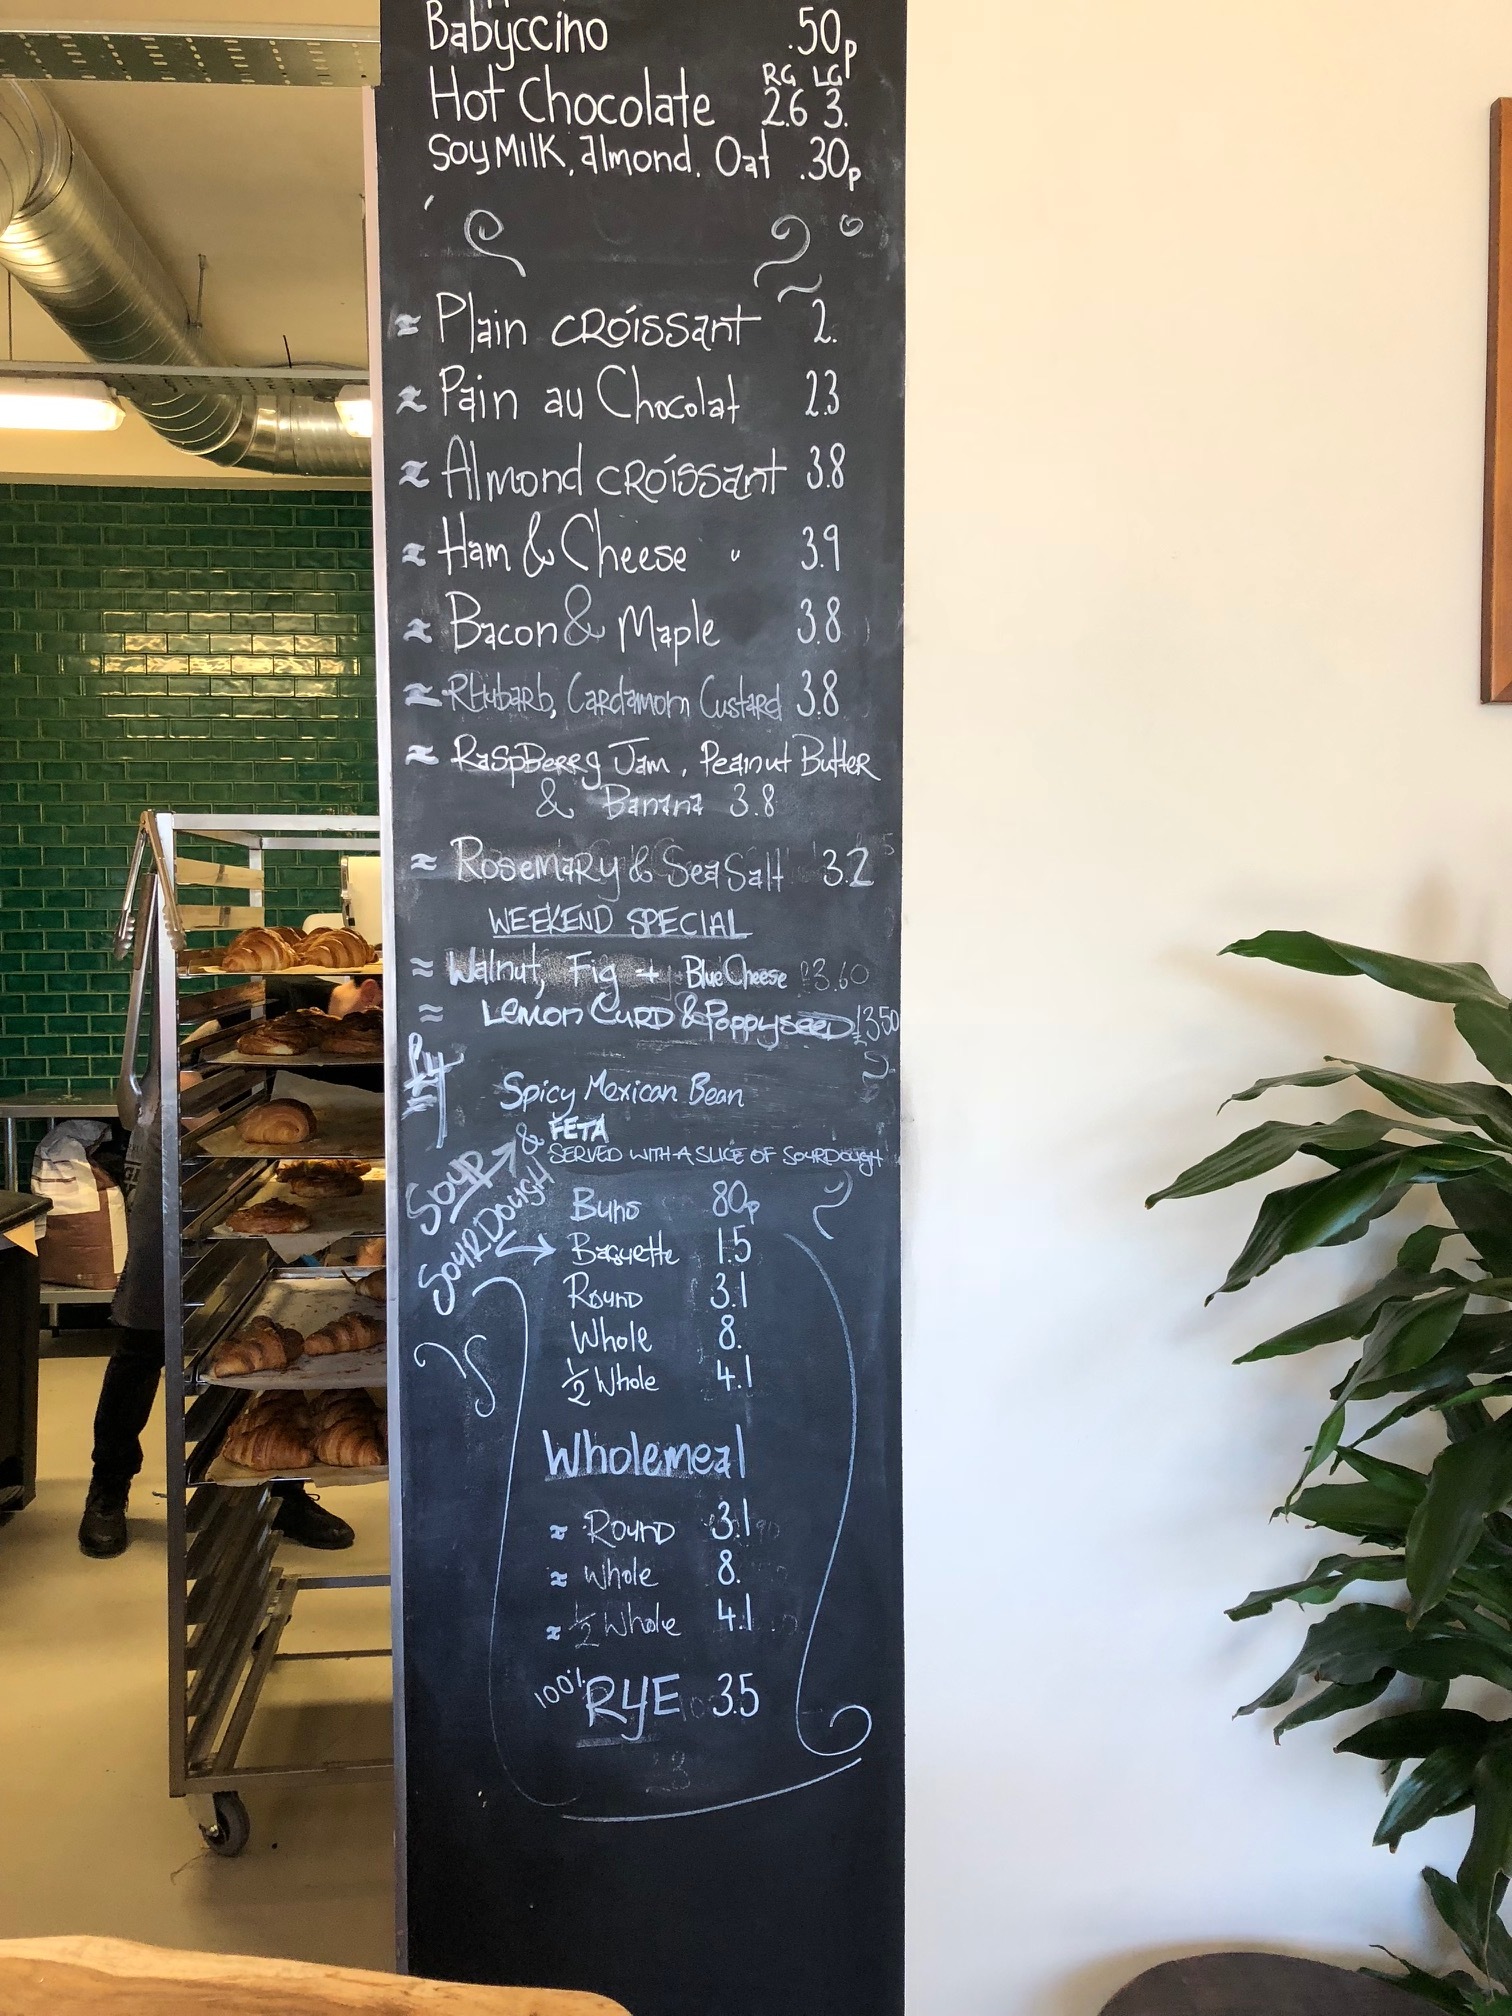 Babyccino .50p
RG LG
Hot Chocolate 2.6 3.
Soy Milk, almond. Oat .30p
≈ Plain CROissant 2.
≈ Pain au Chocolat 2.3
≈ Almond CROissant 3.8
≈ Ham & Cheese " 3.9
≈ Bacon & Maple 3.8
≈ Rhubarb, Cardamom Custard 3.8
≈ RaspBerry Jam, Peanut Butter
& Banana 3.8
≈ Rosemary & Sea Salt 3.2
WEEKEND SPECIAL
≈ Walnut, Fig + Blue Cheese £3.60
≈ Lemon Curd & Poppyseed £3.50
Spicy Mexican Bean
& FETA
SERVED WITH A SLICE OF SOURDOUGH
SOUP
SOURDOUGH
Buns 80p
Baguette 1.5
Round 3.1
Whole 8.
1/2 Whole 4.1
Wholemeal
≈ Round 3.1
≈ Whole 8.
≈ 1/2 Whole 4.1
100% RYE 3.5